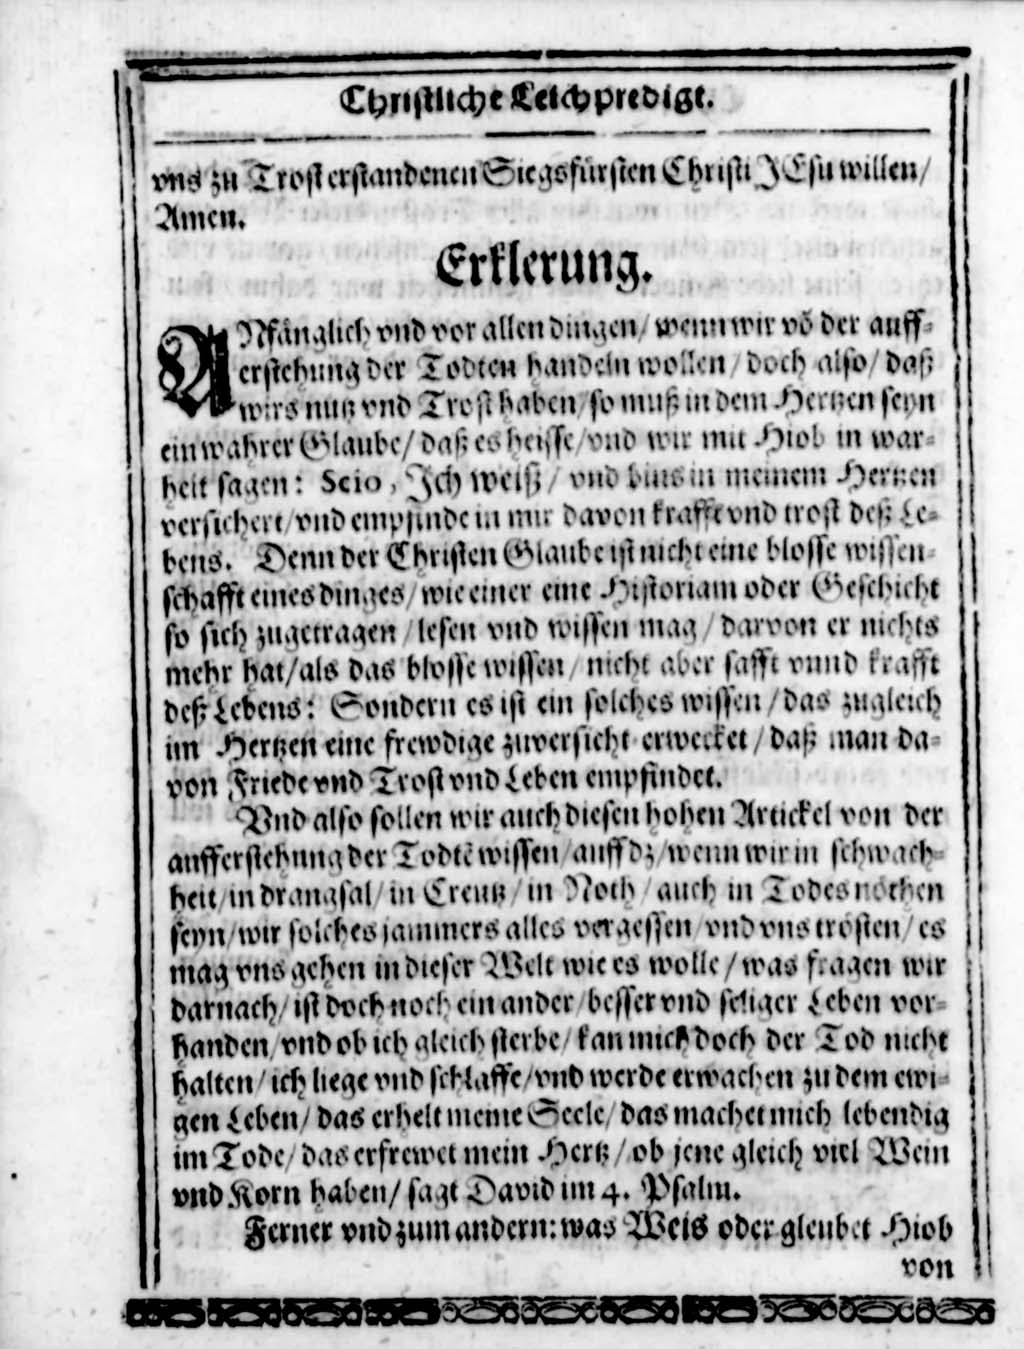 Christliche Leichpredigt.
vns zu Trost erstandenen Siegsfürsten Christi JEsu willen/
Amen.
Erklerung.
ANfänglich vnd vor allen dingen/ wenn wir võ der auff-
erstehung der Todten handeln wollen/ doch also/ daß
wirs nutz vnd Trost haben/ so muß in dem Hertzen seyn
ein wahrer Glaube/ daß es heisse/ vnd wir mit Hiob in war-
heit sagen: Scio, Jch weiß/ vnd bins in meinem Hertzen
versichert/ vnd empfinde in mir davon krafft vnd trost deß Le-
bens. Denn der Christen Glaube ist nicht eine blosse wissen-
schafft eines dinges/ wie einer eine Historiam oder Geschicht
so sich zugetragen/ lesen vnd wissen mag/ darvon er nichts
mehr hat/ als das blosse wissen/ nicht aber safft vnnd krafft
deß Lebens: Sondern es ist ein solches wissen/ das zugleich
im Hertzen eine frewdige zuversicht erwecket/ daß man da-
von Friede vnd Trost vnd Leben empfindet.
Vnd also sollen wir auch diesen hohen Artickel von der
aufferstehung der Todtẽ wissen/ auff dz/ wenn wir in schwach-
heit/ in drangsal/ in Creutz/ in Noth/ auch in Todesnöthen
seyn/ wir solches jammers alles vergessen/ vnd vns trösten/ es
mag vns gehen in dieser Welt wie es wolle/ was fragen wir
darnach/ ist doch noch ein ander/ besser vnd seliger Leben vor-
handen/ vnd ob ich gleich sterbe/ kan mich doch der Tod nicht
halten/ ich liege vnd schlaffe/ vnd werde erwachen zu dem ewi-
gen Leben/ das erhelt meine Seele/ das machet mich lebendig
im Tode/ das erfrewet mein Hertz/ ob jene gleich viel Wein
vnd Korn haben/ sagt David im 4. Psalm.
Ferner vnd zum andern: was Weis oder gleubet Hiob
von